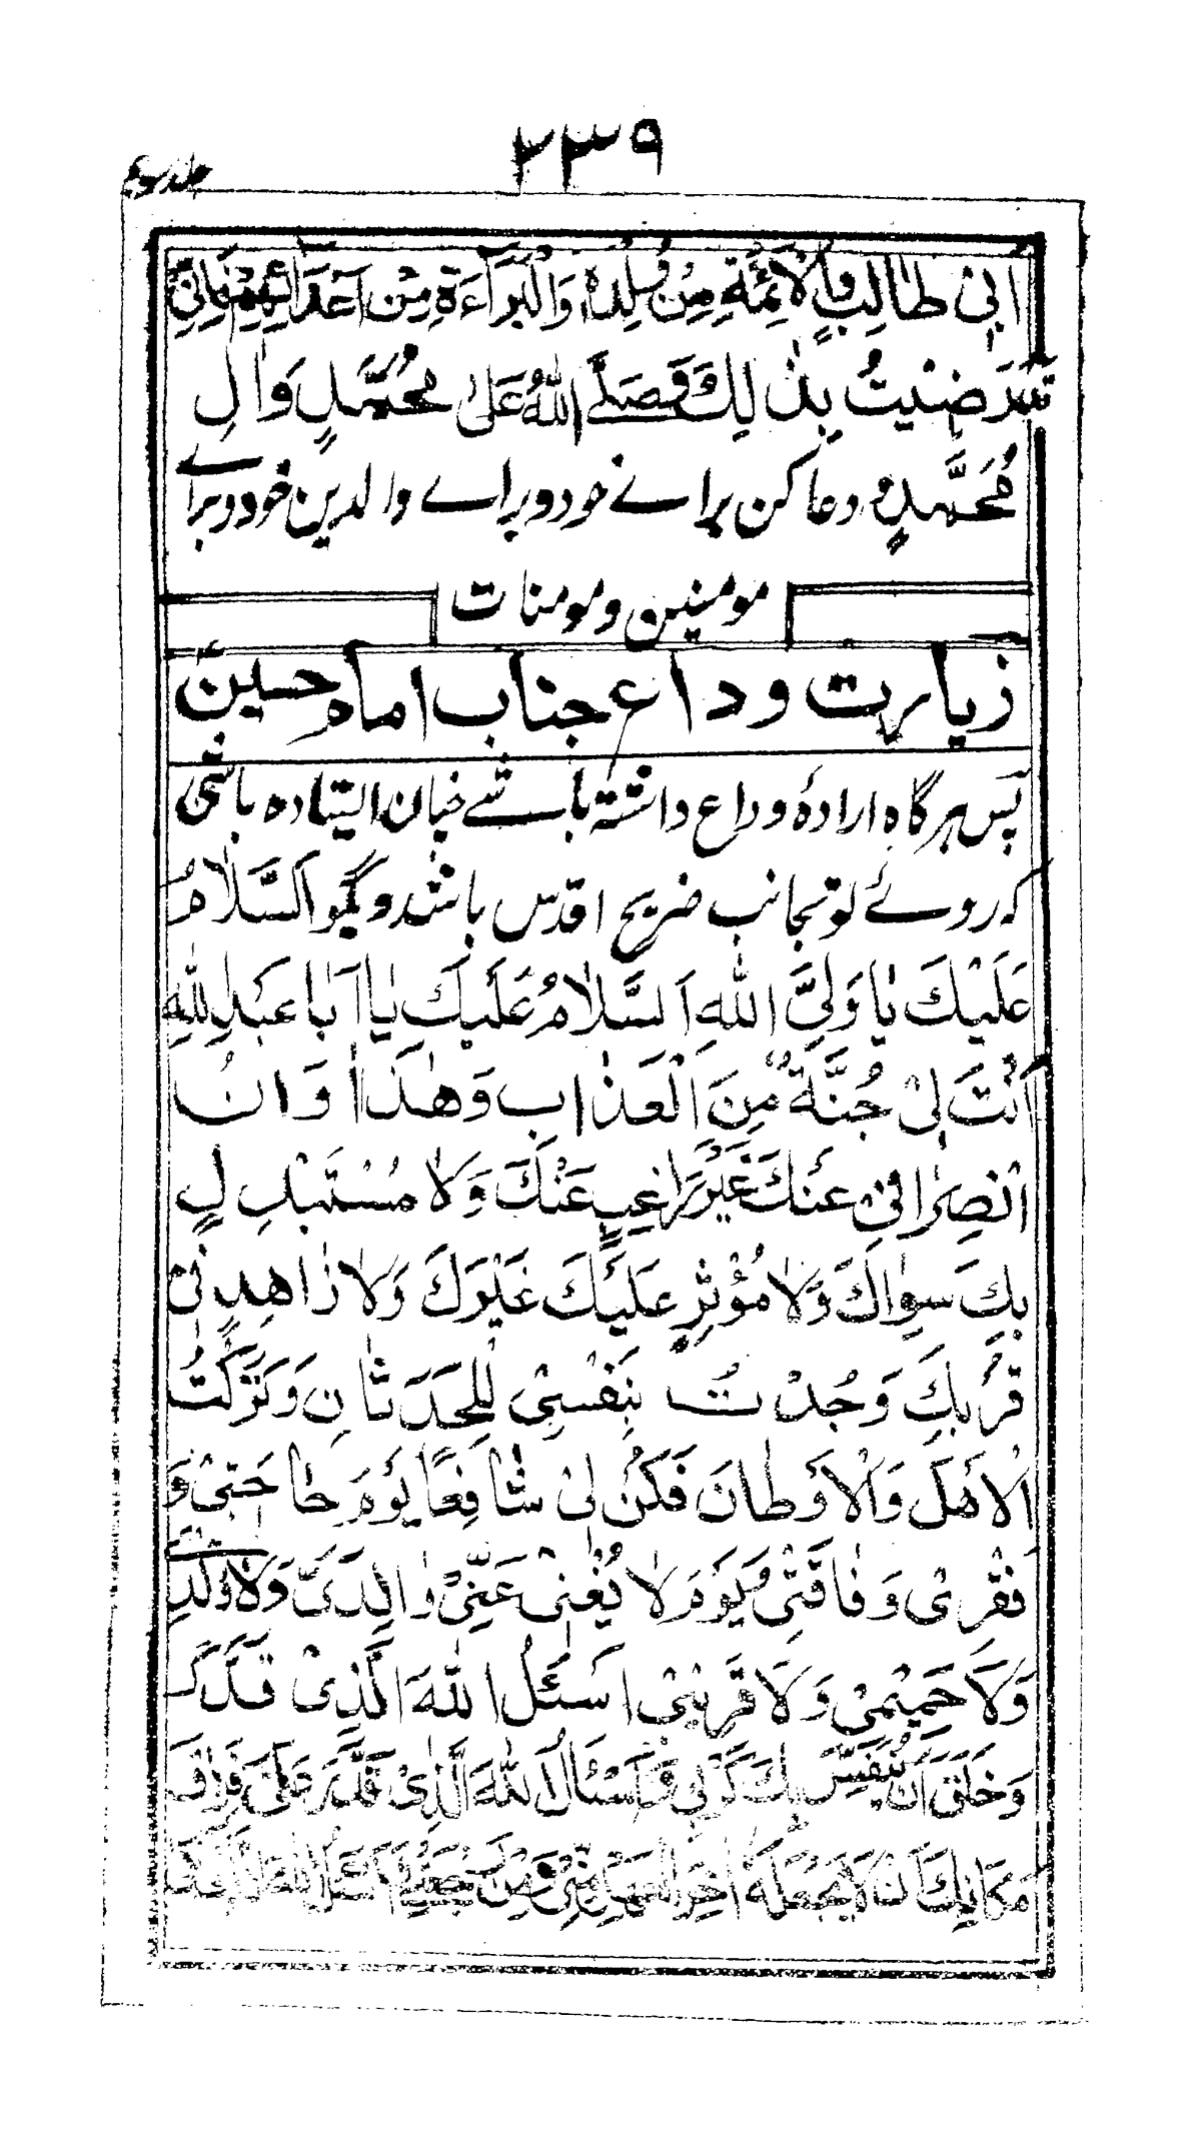 ۲۳۹
جلد سوم
اَبِیْ طَالِبٍ وَالْاَئِمَّةِ مِنْ وُلْدِهٖ وَالْبَرَآءَةِ مِنْ اَعْدَائِهِمْ فَاِنِّیْ
قَدْ رَضِیْتُ بِذٰلِكَ فَصَلَّے اللّٰهُ عَلٰی مُحَمَّدٍ وَاٰلِ
مُحَمَّدٍ و دعا کن برائے خود و براے والدین خود و براے
مومنین و مومنات
زیارت وداع جناب امام حسینؑ
پس ہرگاہ ارادۂ وداع داشتہ باشے چنان ایستادہ باشی
کہ روئے تو بجانب ضریح اقدس باشد و بگو اَلسَّلَامُ
عَلَیْكَ یَا وَلِیَّ اللّٰهِ اَلسَّلَامُ عَلَیْكَ یَا اَبَا عَبْدِ اللّٰهِ
اَنْتَ لِیْ جُنَّةٌ مِّنَ الْعَذَابِ وَهٰذَا اَوَانُ
انْصِرَافِیْ عَنْكَ غَیْرَ رَاغِبٍ عَنْكَ وَلَا مُسْتَبْدِلٍ
بِكَ سِوَاكَ وَلَا مُؤْثِرٍ عَلَیْكَ غَیْرَكَ وَلَا زَاهِدٍ فِیْ
قُرْبِكَ وَجُدْتُ بِنَفْسِیْ لِلْحَدَثَانِ وَتَرَكْتُ
الْاَهْلَ وَالْاَوْطَانَ فَكُنْ لِیْ شَافِعًا یَوْمَ حَاجَتِیْ وَ
فَقْرِیْ وَفَاقَتِیْ یَوْمَ لَا یُغْنِیْ عَنِّیْ وَالِدَیَّ وَلَا وَلَدِے
وَلَا حَمِیْمِیْ وَلَا قَرِیْبِیْ اَسْئَلُ اللّٰهَ الَّذِیْ قَدَّرَ
وَخَلَقَ اَنْ یُنَفِّسَ بِكَ كَرْبِیْ وَاَسْئَالُ اللّٰهَ الَّذِیْ قَدَّرَ عَلَیَّ فِرَاقَ
مَكَانِكَ اَنْ لَا یَجْعَلَهٗ اٰخِرَ الْعَهْدِ مِنِّیْ وَمِنْ